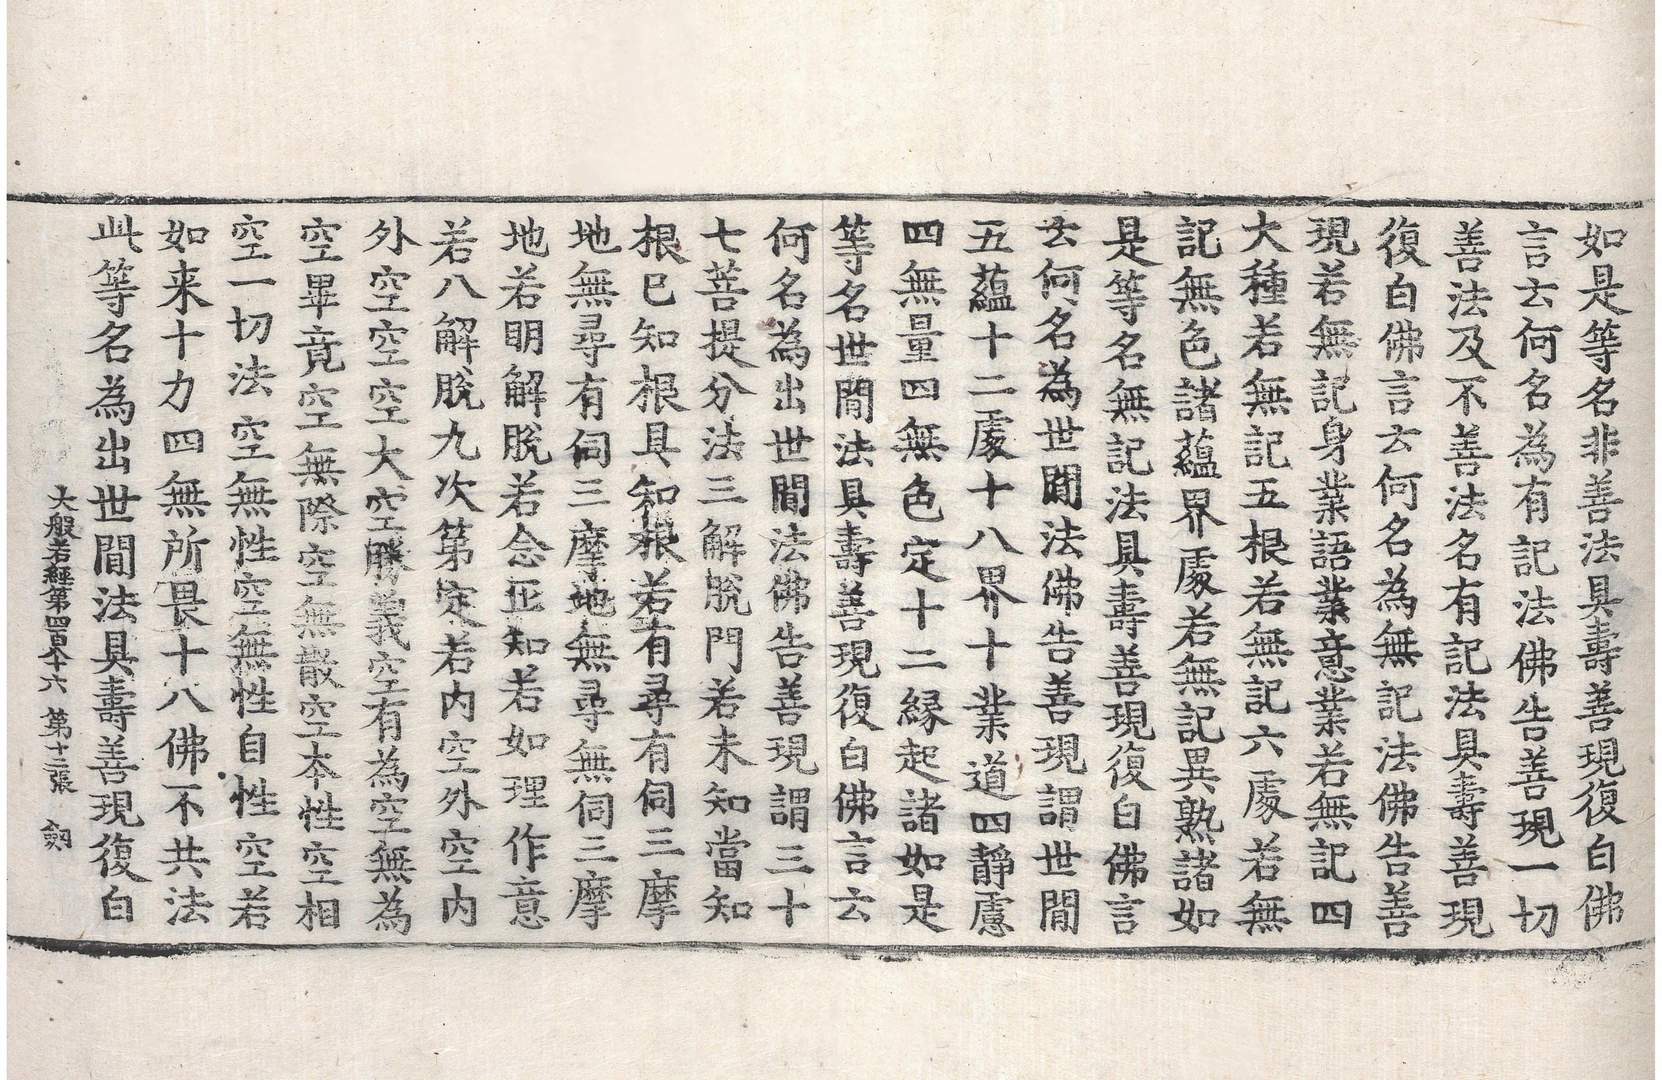 如是等名非善法具壽善現復白佛
言云何名為有記法佛告善現一切
善法及不善法名有記法具壽善現
復白佛言云何名為無記法佛告善
現若無記身業語業意業若無記四
大種若無記五根若無記六處若無
記無色諸蘊界處若無記異熟諸如
是等名無記法具壽善現復白佛言
云何名為世間法佛告善現謂世間
五蘊十二處十八界十業道四靜慮
四無量四無色定十二緣起諸如是
等名世間法具壽善現復白佛言云
何名為出世間法佛告善現謂三十
七菩提分法三解脫門若未知當知
根已知根具知根若有尋有伺三摩
地無尋有伺三摩地無尋無伺三摩
地若明解脫若念正知若如理作意
若八解脫九次第定若內空外空內
外空空空大空勝義空有為空無為
空畢竟空無際空無散空本性空相
空一切法空無性空無性自性空若
如来十力四無所畏十八佛不共法
此等名為出世間法具壽善現復白
大般若經第四百八十六 第十二張 劒